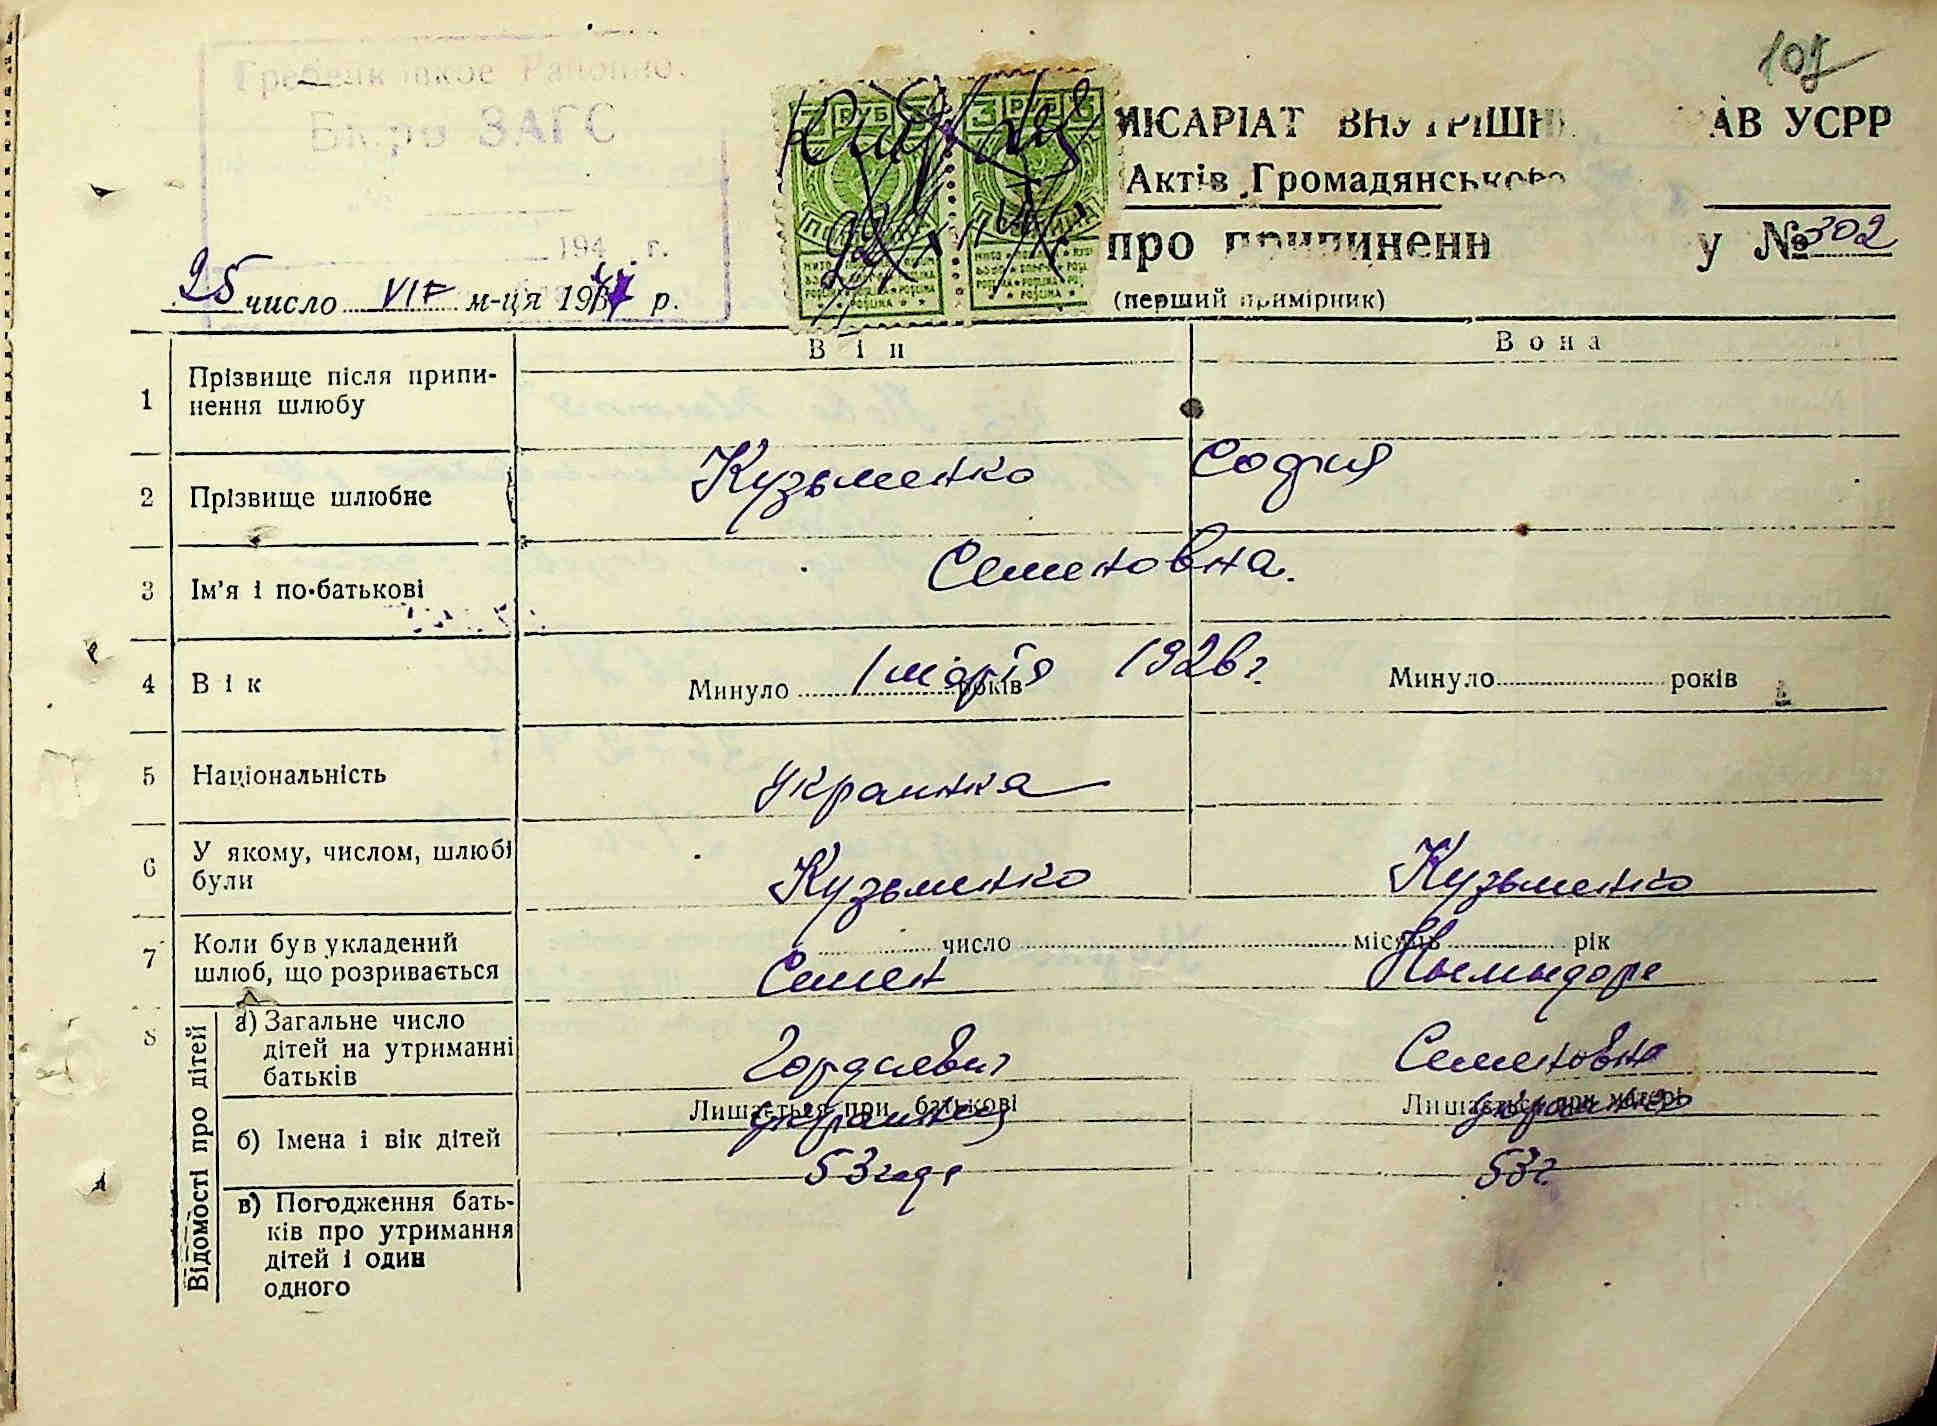 107
Гребенковское Районно.
Бюро ЗАГС
194 г.
3 РУБ 3 РУБ
МІСАРІАТ ВНУТРІШН АВ УСРР
Актів Громадянського
про припиненн у № 302
25 число VII м-ця 19 р.
(перший примірник)
Він Вона
1 Прізвище після припинення шлюбу
2 Прізвище шлюбне Кузьменко София
3 Ім'я і по-батькові Семеновна.
4 Вік Минуло 1 марта років 1926 г. Минуло років
5 Національність украинка
6 У якому, числом, шлюбі були Кузьменко Кузьменко
7 Коли був укладений шлюб, що розривається число місяць рік
Семен
8 Відомості про дітей
а) Загальне число дітей на утриманні батьків Гордеевич Семеновна
Лишається при батькові Лишається при матері
украинец украинка
б) Імена і вік дітей 53 года 53 г.
в) Погодження батьків про утримання дітей і один одного